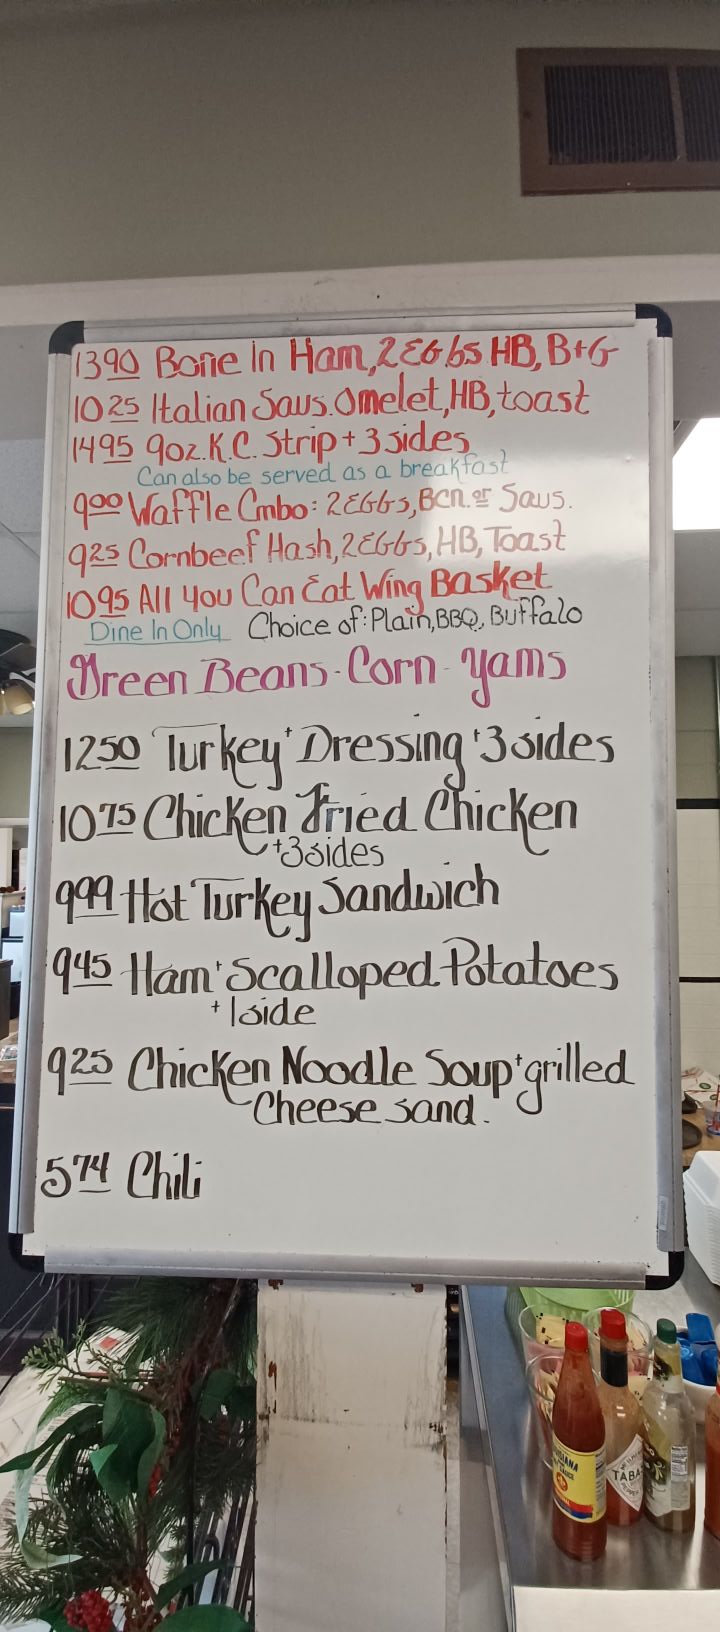 1390 Bone In Ham, 2 EGGS HB, B+G
1025 Italian Saus. Omelet, HB, toast
1495 9oz. K.C. Strip + 3 sides
Can also be served as a breakfast
900 Waffle Cmbo: 2 EGGS, Bcn. or Saus.
925 Cornbeef Hash, 2 EGGS, HB, Toast
1095 All You Can Eat Wing Basket
Dine In Only Choice of: Plain, BBQ, Buffalo
Green Beans - Corn - Yams
1250 Turkey + Dressing + 3 sides
1075 Chicken Fried Chicken
+3 sides
999 Hot Turkey Sandwich
945 Ham + Scalloped Potatoes
+ 1 side
925 Chicken Noodle Soup + grilled
Cheese sand.
574 Chili
TABA